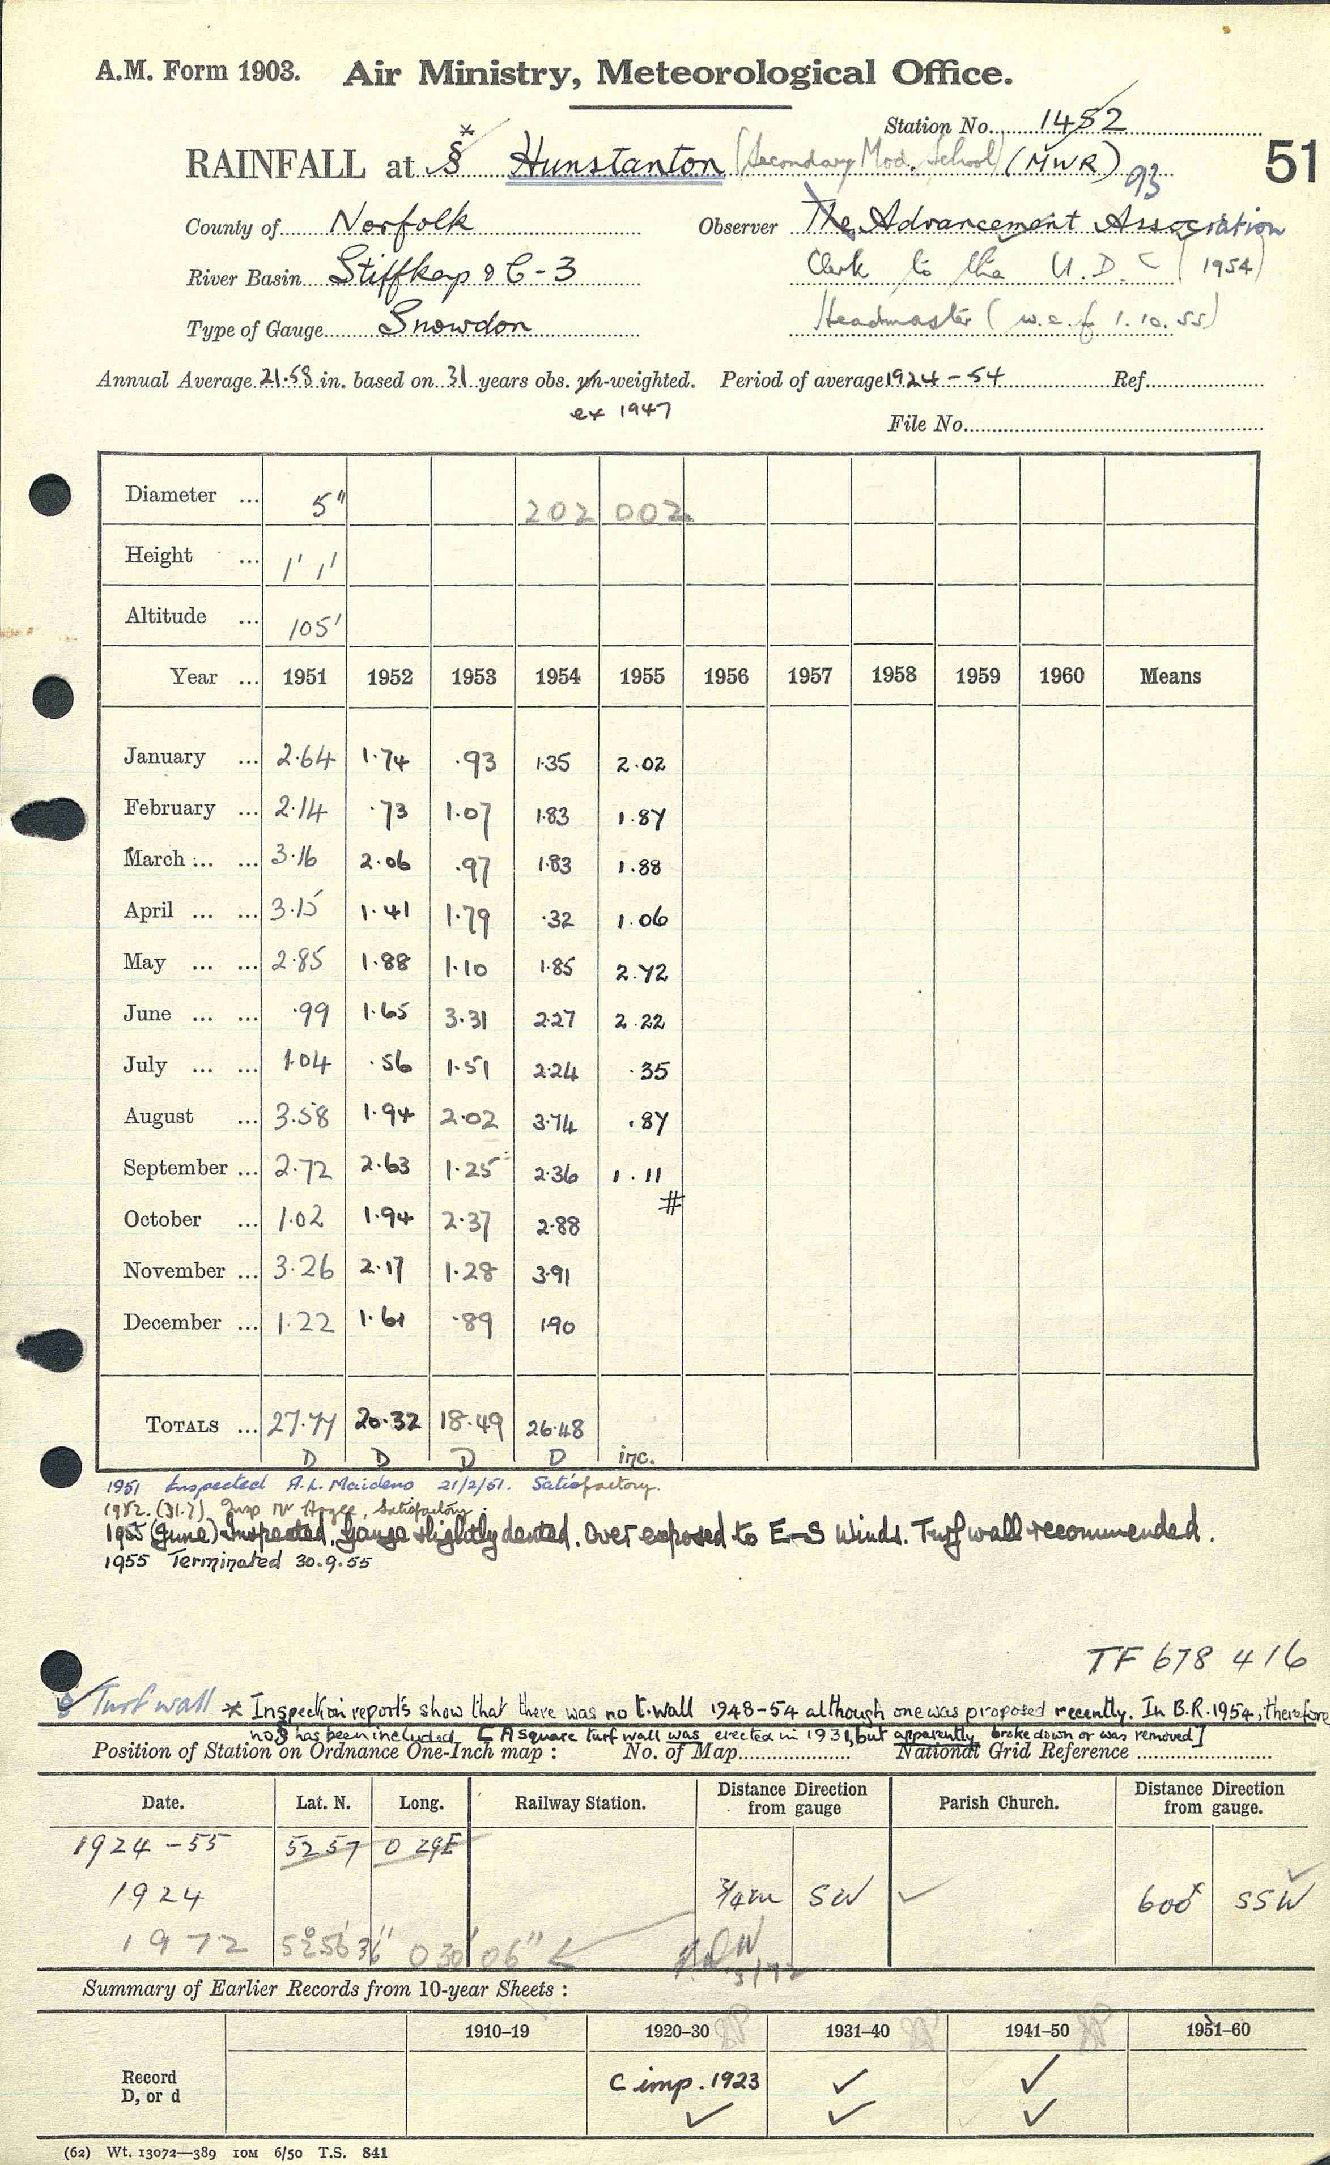 A.M. Form 1903. Air Ministry, Meteorological Office.
Station No. 1452
RAINFALL at § * Hunstanton (Secondary Mod. School) (MWR) 93
51
County of Norfolk Observer The Advancement Association
River Basin Stiffkey & C-3 Clerk to the U.D.C (1954)
Type of Gauge Snowdon Headmaster (w.e.f 1.10.55)
Annual Average 21.58 in. based on 31 years obs. -weighted. Period of average 1924-54 Ref.
ex 1947
File No.
Diameter ... 5" 202 002
Height ... 1' 1"
Altitude ... 105'
Year ... 1951 1952 1953 1954 1955 1956 1957 1958 1959 1960 Means
January ... 2.64 1.74 .93 1.35 2.02
February ... 2.14 .73 1.07 1.83 1.87
March ... ... 3.16 2.06 .97 1.83 1.88
April ... ... 3.15 1.41 1.79 .32 1.06
May ... ... 2.85 1.88 1.10 1.85 2.72
June ... ... .99 1.65 3.31 2.27 2.22
July ... ... 1.04 .56 1.51 2.24 .35
August ... 3.58 1.94 2.02 3.74 .87
September ... 2.72 2.63 1.25 2.36 1.11
#
October ... 1.02 1.94 2.37 2.88
November ... 3.26 2.17 1.28 3.91
December ... 1.22 1.61 .89 1.90
TOTALS ... 27.77 20.32 18.49 26.48
D D D D inc.
1951 Inspected A.L. Maidens 21/2/51. Satisfactory.
1952. (31.7) Insp Mr Satisfactory.
1955 (June) Inspected. Gauge slightly dented. Over exposed to E-S Winds. Turf wall recommended.
1955 Terminated 30.9.55
TF 678 416
§ Turf wall * Inspection reports show that there was no t.wall 1948-54 although one was proposed recently. In B.R. 1954, therefore
no § has been included [A square turf wall was erected in 1931, but apparently broke down or was removed]
Position of Station on Ordnance One-Inch map : No. of Map National Grid Reference
Date. Lat. N. Long. Railway Station. Distance Direction from gauge Parish Church. Distance Direction from gauge.
1924-55 52 57 0 29E
1924 3/4m SW ✓ 600x SSW ✓
1972 52° 56' 36" 0 30' 06"
3/72
Summary of Earlier Records from 10-year Sheets :
1910-19 1920-30 1931-40 1941-50 1951-60
Record D, or d C imp. 1923 ✓ ✓
✓ ✓ ✓
(62) Wt. 13072—389 10M 6/50 T.S. 841